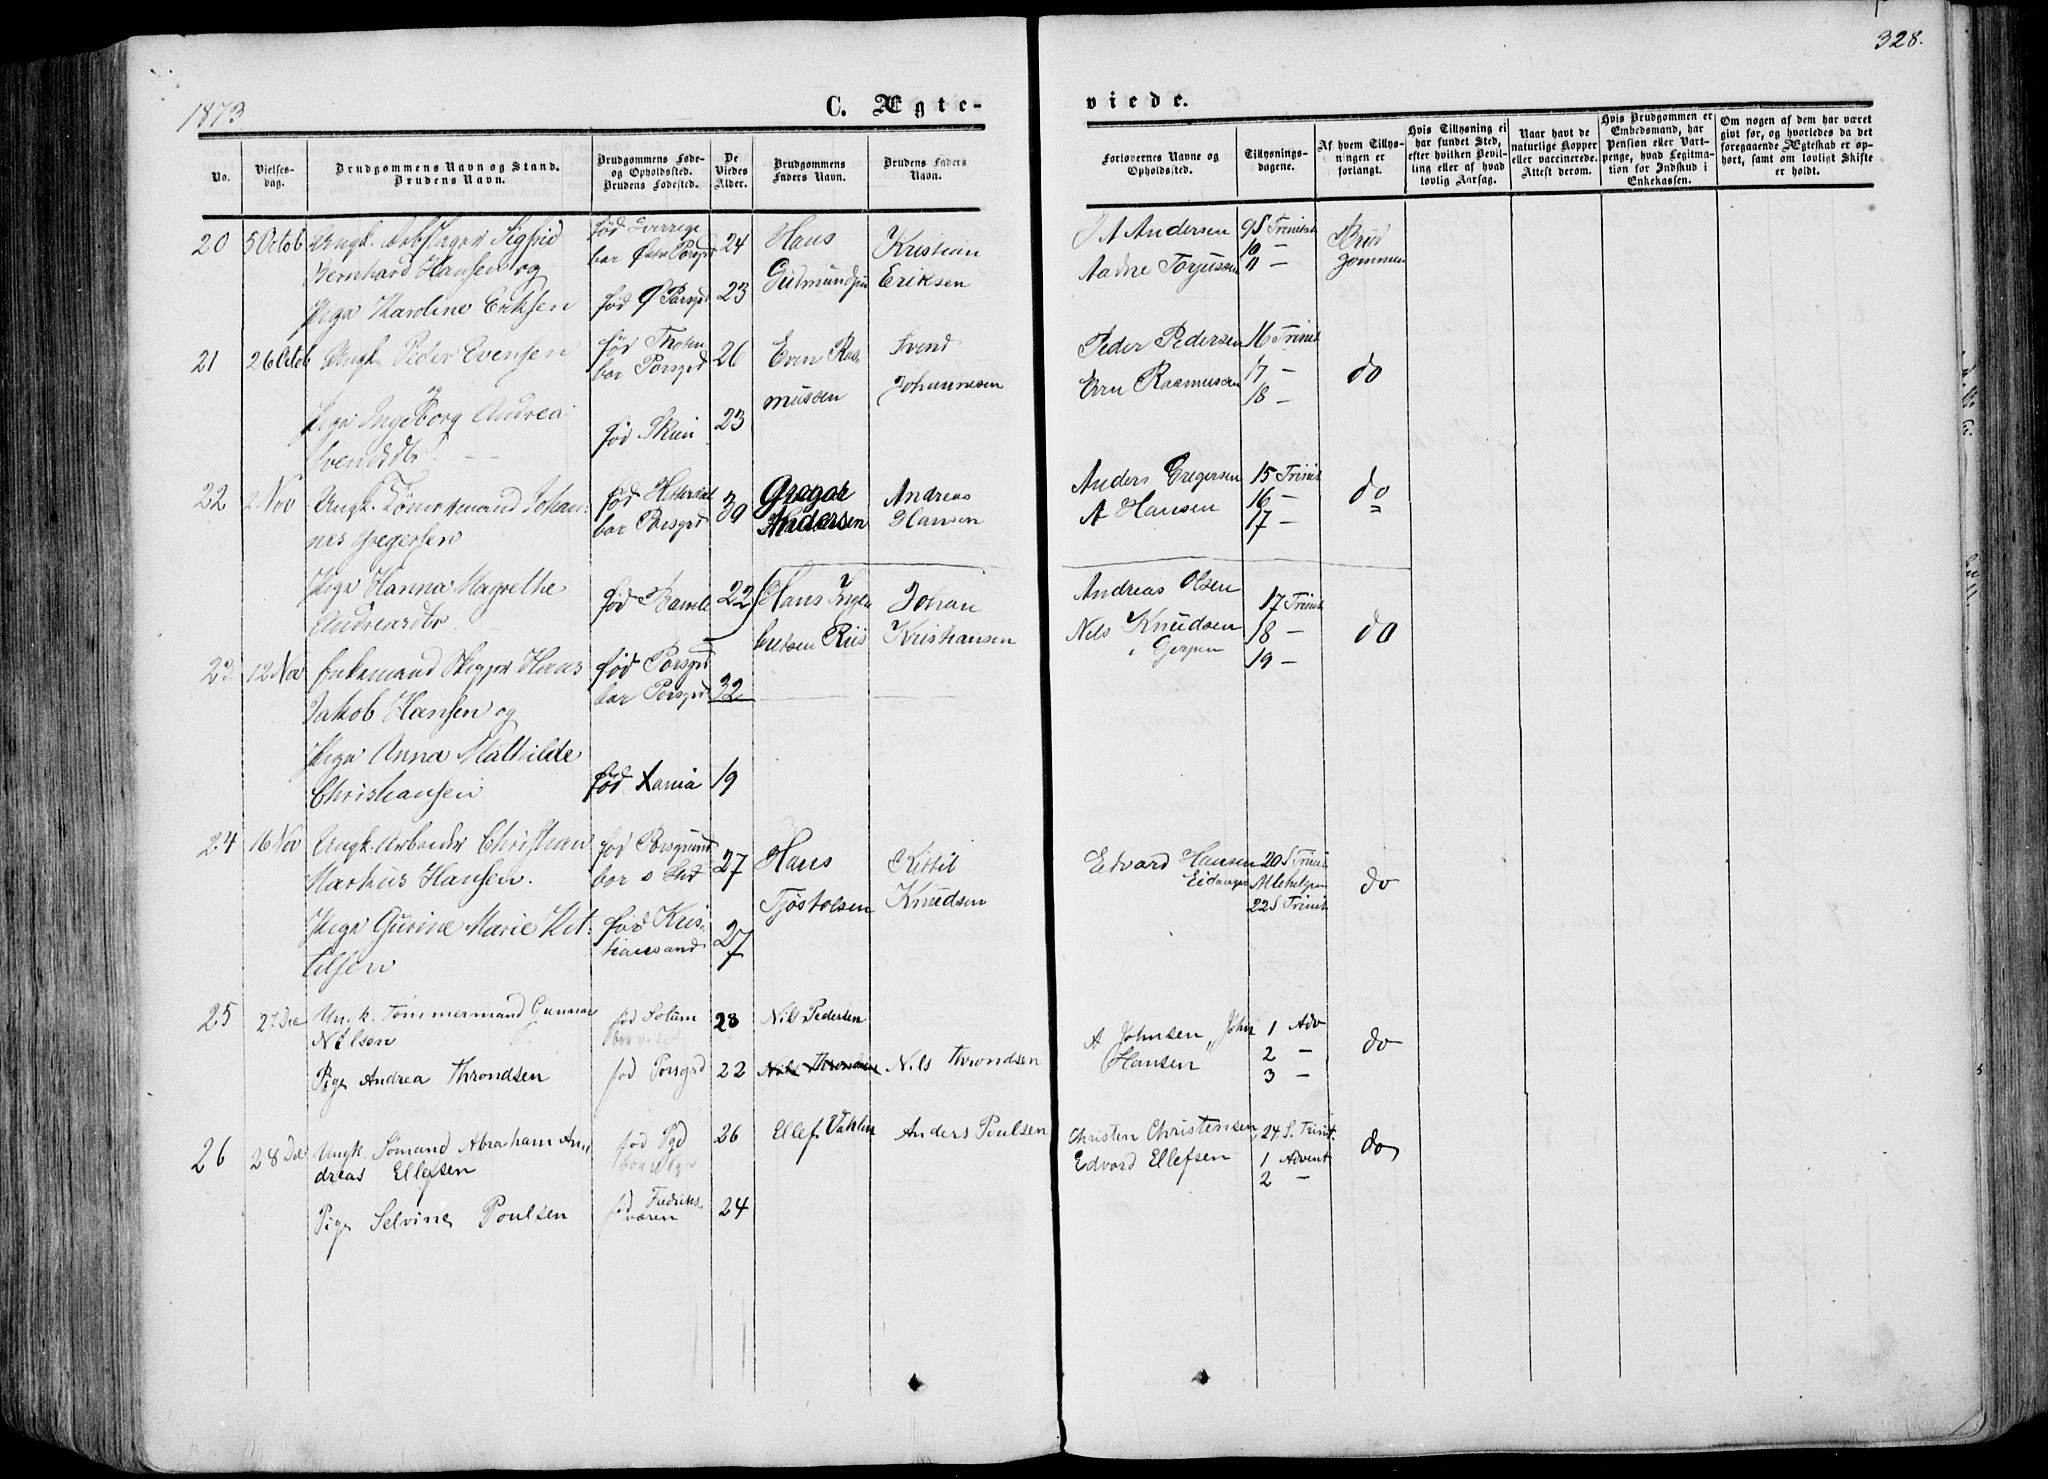 328.
1873
C. Ægte-
viede.
No.
Vielses-
dag.
Brudgommens Navn og Stand.
Brudens Navn.
Brudgommens Føde-
og Opholdssted.
Brudens Fødested.
De
Viedes
Alder.
Brudgommens
Faders Navn.
Brudens Faders
Navn.
Forlovernes Navne og
Opholdssted.
Tillysnings-
dagene.
Af hvem Tillys-
ningen er
forlangt.
Hvis Tillysning ei
har fundet Sted,
efter hvilken Bevil-
ling eller af hvad
lovlig Aarsag.
Naar havt de
naturlige Kopper
eller vaccinerede.
Attest derom.
Hvis Brudgommen er
Embedsmand, har
Pension eller Vart-
penge, hvad Legitma-
tion for Indskud i
Enkekassen.
Om nogen af dem har været
givt for, og hvorledes da det
foregaaende Ægteskab er op-
hørt, samt om lovligt Skifte
er holdt.
20 5 Octob Ungk. Sigfrid
Bernhard Hansen og
Pige Karoline Eriksen
fød Sverrige
bor Østre Porsgrd
fød Ø Porsgrd
24
23
Hans
Gudmundsen
Kristian
Eriksen
J A Andersen
Aadne Torjussen
9 S Trinitat
10 —
11 —
Brud
gommen
21 26 Octob Ungk Peder Evensen
og
Pige Ingeborg Andrea
Svendsdtr.
fød Thoten
bor Porsgrd
fød Skien
26
23
Even Ras
mussen
Svend
Johannesen
Peder Pedersen
Even Rasmussen
16 Trinit
17 —
18 —
do
22 2 Nov Ungk. Tømmermand Johan-
nes Gregersen
Pige Hanna Magrethe
Andreasdtr.
fød Hitterdal
bor Porsgrd
fød Bamle
39
22
Gregar
Andersen
Andreas
Hansen
Anders Gregersen
A Hansen
15 Trinit
16 —
17 —
do
23 12 Nov Enkemand Skipper Hans
Jakob Hansen og
Pige Anna Mathilde
Christiansen
fød Porsgrd
bor Porsgrd
fød Xania
32
19
Hans Inge
bretsen Riis
Johan
Kristiansen
Andreas Olsen
Nils Knudsen
i Gjerpen
17 Trinit
18 —
19 —
do
24 16 Nov Ungk. Arbeider Christian
Markus Hansen.
Pige Gurine Marie Ket-
tilsen
fød Porsgrund
bor s Sted
fød Kris-
tiansand
27
27
Hans
Tjøstolsen
Kittil
Knudsen
Edvard Hansen
Eidanger
20 S Trinit
Allehelgen
22 S Trinit
do
25 27 Dec Un.k. Tømmermand Gunnar
Nilsen
Pige Andrea Throndsen
fød Solum
fød Porsgrd
28
22
Nils Pedersen
Nils Throndsen
Nils Throndsen
A Johnsen, John
Hansen
1 Adv
2 —
3 —
do
26 28 Dec Ungk. Sømand Abraham An-
dreas Ellefsen
Pige Selvine Poulsen
fød Pgd
fød Fredriks-
værn
26
24
Ellef Vahlin
Anders Poulsen
Christen Christensen
Edvard Ellefsen
24 S. Trinit.
1 Advent
2 —
do